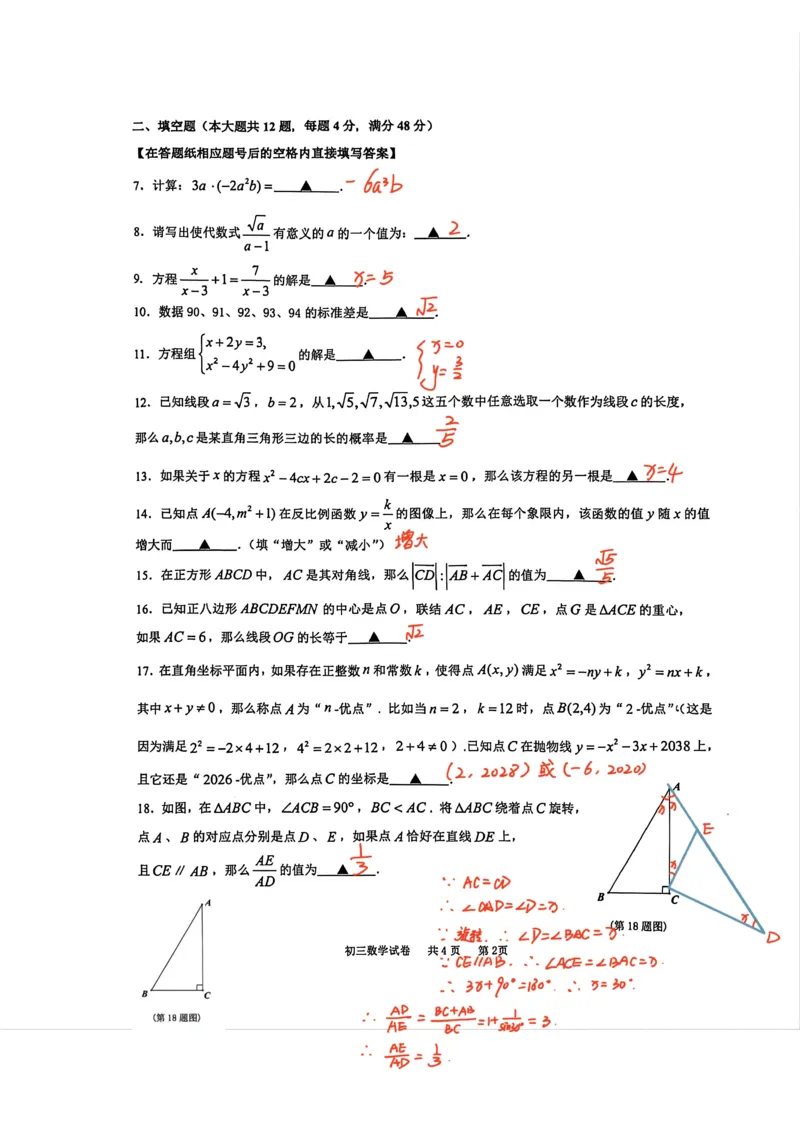 二、填空题（本大题共 12 题，每题 4 分，满分 48 分）
【在答题纸相应题号后的空格内直接填写答案】
7．计算：3a·(−2a²b)=____▲____. −6a³b
8．请写出使代数式 √a/(a−1) 有意义的 a 的一个值为：__▲__. 2
9．方程 x/(x−3)+1=7/(x−3) 的解是__▲____. x=5
10．数据 90、91、92、93、94 的标准差是____▲____. √2
11．方程组 {x+2y=3, x²−4y²+9=0 的解是____▲____. {x=0 y=3/2
12．已知线段 a=√3，b=2，从 1,√5,√7,√13,5 这五个数中任意选取一个数作为线段 c 的长度，
那么 a,b,c 是某直角三角形三边的长的概率是__▲____ 2/5
13．如果关于 x 的方程 x²−4cx+2c−2=0 有一根是 x=0，那么该方程的另一根是__▲____. x=4
14．已知点 A(−4,m²+1) 在反比例函数 y=k/x 的图像上，那么在每个象限内，该函数的值 y 随 x 的值
增大而____▲____.（填“增大”或“减小”） 增大
15．在正方形 ABCD 中，AC 是其对角线，那么 |CD|:|AB+AC| 的值为____▲____. √5/5
16．已知正八边形 ABCDEFMN 的中心是点 O，联结 AC，AE，CE，点 G 是△ACE 的重心，
如果 AC=6，那么线段 OG 的长等于____▲____. √2
17．在直角坐标平面内，如果存在正整数 n 和常数 k，使得点 A(x,y) 满足 x²=−ny+k，y²=nx+k，
其中 x+y≠0，那么称点 A 为“n-优点”．比如当 n=2，k=12 时，点 B(2,4) 为“2-优点”（这是
因为满足 2²=−2×4+12，4²=2×2+12，2+4≠0）.已知点 C 在抛物线 y=−x²−3x+2038 上，
且它还是“2026-优点”，那么点 C 的坐标是____▲____. (2，2028) 或 (−6，2020)
18．如图，在△ABC 中，∠ACB=90°，BC<AC．将△ABC 绕着点 C 旋转，
点 A、B 的对应点分别是点 D、E，如果点 A 恰好在直线 DE 上，
且 CE∥AB，那么 AE/AD 的值为____▲____. 1/3
A
x x
E
x
B
C
x
D
(第18题图)
∵ AC=CD
∴ ∠CAD=∠D=x.
∵ 旋转. ∴ ∠D=∠BAC=x.
∵ CE∥AB. ∴ ∠ACE=∠BAC=x.
∴ 3x+90°=180°. ∴ x=30°.
∴ AD/AE=(BC+AB)/BC=1+1/sin30°=3.
∴ AE/AD=1/3.
初三数学试卷 共4页 第2页
A
B
C
(第18题图)